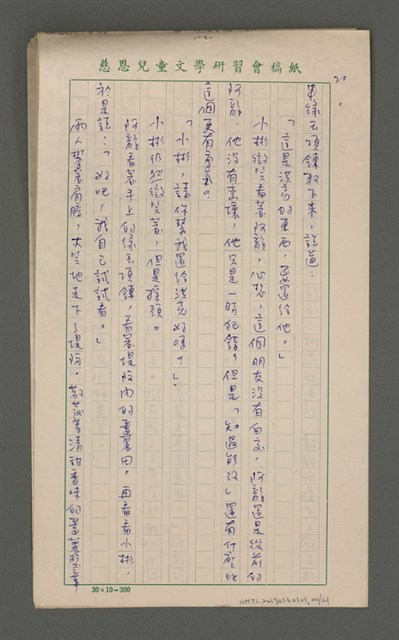 慈恩兒童文學研習會稿紙
20
串綠玉項鍊取下來，說道：
「這是洪亮的東西，要還給他。」
小彬微笑看著阿龍，心想，這個朋友沒有白交，阿龍還是從前的
阿龍，他沒有變壞，他只是一時犯錯，但是「知過能改」還有什麼比
這個更有勇氣。
「小彬，請你幫我還給洪亮好嗎？」
小彬仍然微笑著，但是搖頭。
阿龍看著手上的綠玉項鍊，看著堤防內的薑花田，再看看小彬，
於是說：「好吧！我自己試試看。」
兩人攀著肩膀，大步地走下了堤防。散發著清甜香味的
30×10=300